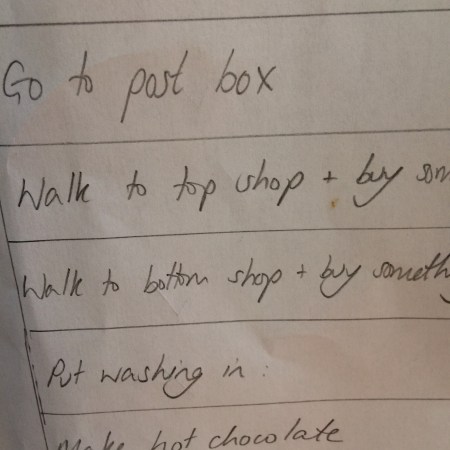 Go to post box
Walk to top shop + buy som
Walk to bottom shop + buy someth
Put washing in :
Make hot chocolate